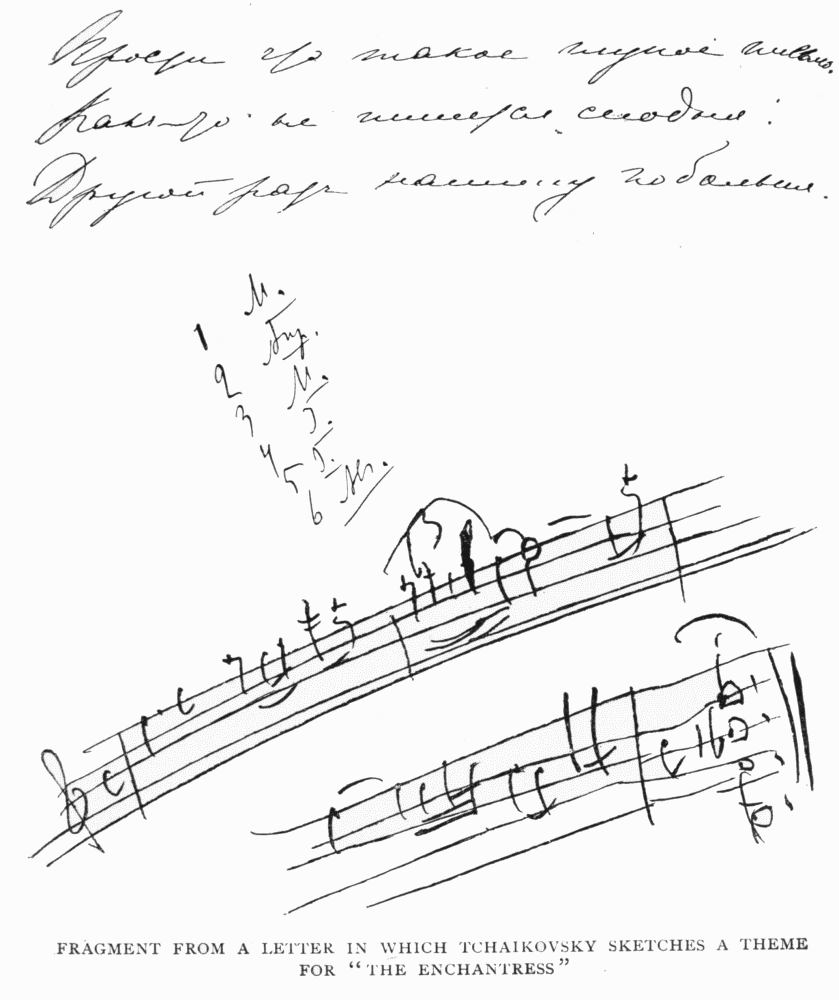 Прости что такое глупое письмо.
Какъ-то не пишется сегодня!
Другой разъ напишу побольше.
М.
1
2 М.
3
4
5
6
FRAGMENT FROM A LETTER IN WHICH TCHAIKOVSKY SKETCHES A THEME
FOR “THE ENCHANTRESS”